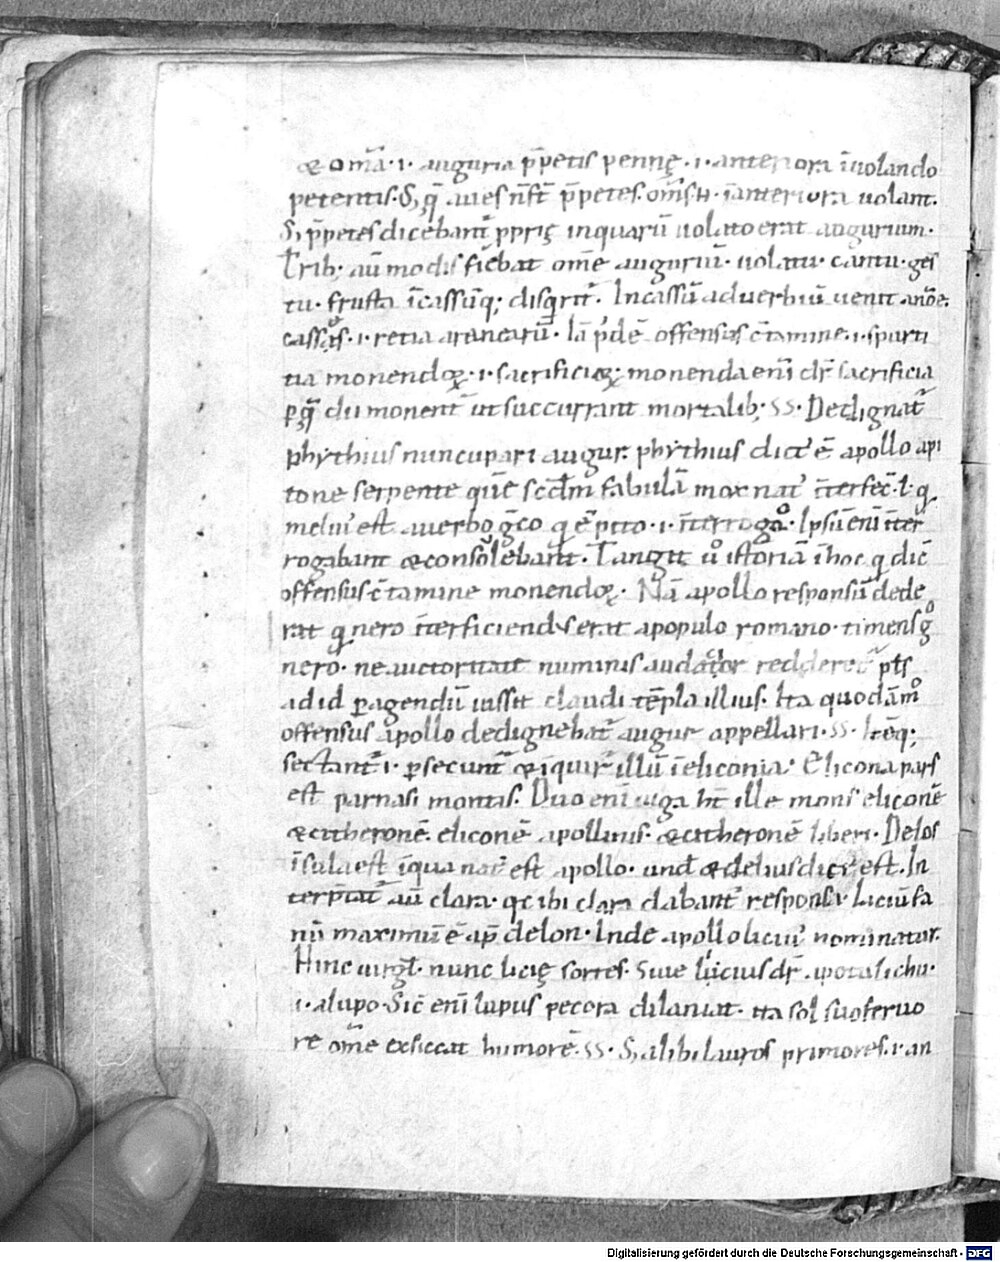 & om̄a · i · auguria p̄petis pennę · i · anteriora īuolando
petentis. S; q̄ aues n̄ st̄ p̄petes. om̄s .n. īanteriora uolant.
S; p̄petes dicebant̄ ꝓprię inquarū uolatu erat augurium.
Trib; aū modis fiebat om̄e auguriū. uolatu. cantu. ges
tu. frusta īcassūq; disq̄rit̄. Incassū aduerbiū uenit
casses .i. retia aranearū. Iā p̄dē offensus c̄tamine .i. spurti
tia monendoꝝ .i. sacrificioꝝ. monenda eni dr̄ sacrificia
ꝑ q̄ dii monent̄ ut succurrant mortalib; SS. Dedignat̄
phythius nuncupari augur. phythius dict̄ ē apollo a pi
tone serpente quē scdm fabulā mox nat᷒ īterfec̄. ł q
meliu᷒ est a uerbo g̊co q ē pito .i. īterrogo. Ipsū enī īter
rogabant & consolebant̄. Tangit ů istoriā ī hoc q dic̄
offensus c̄tamine monendoꝝ. Nā apollo responsū dede
rat q nero īterficiend᷒ erat a populo romano. timens g̊
nero. ne auctoritatē numinis audacior redderet᷒ ppl̄s
ad id ꝑagendū iussit claudi tēpla illius. Ita quodāmo
offensus apollo dedignebat̄ augur appellari. SS.
sectant̄ .i. ꝑsecunt̄ & īquir̄ illū ī eliconia. Elicona pars
est parnasi montis. Duo enī iuga ht̄ ille mons eliconē
& citheronē. eliconē apollinis. & citheronē liberi. Delos
īsula est ī qua nat᷒ est apollo. und̄ & delius dict᷒ est. In
terp̄tat̄ aū clara. qͥ ibi clara dabant̄ responsa. Liciū fa
nū maximū ē ap̄ delon. Inde apollo liciu᷒ nominatur.
Hinc uirgł. nunc licię sortes. Siue licius dr̄ apo tu lichu.
.i. a lupo. Sic̄ enī lupus pecora dilaniat. ita sol suo feruo
re om̄e exsiccat humorē. SS. S; alibi lauros primores .i. an